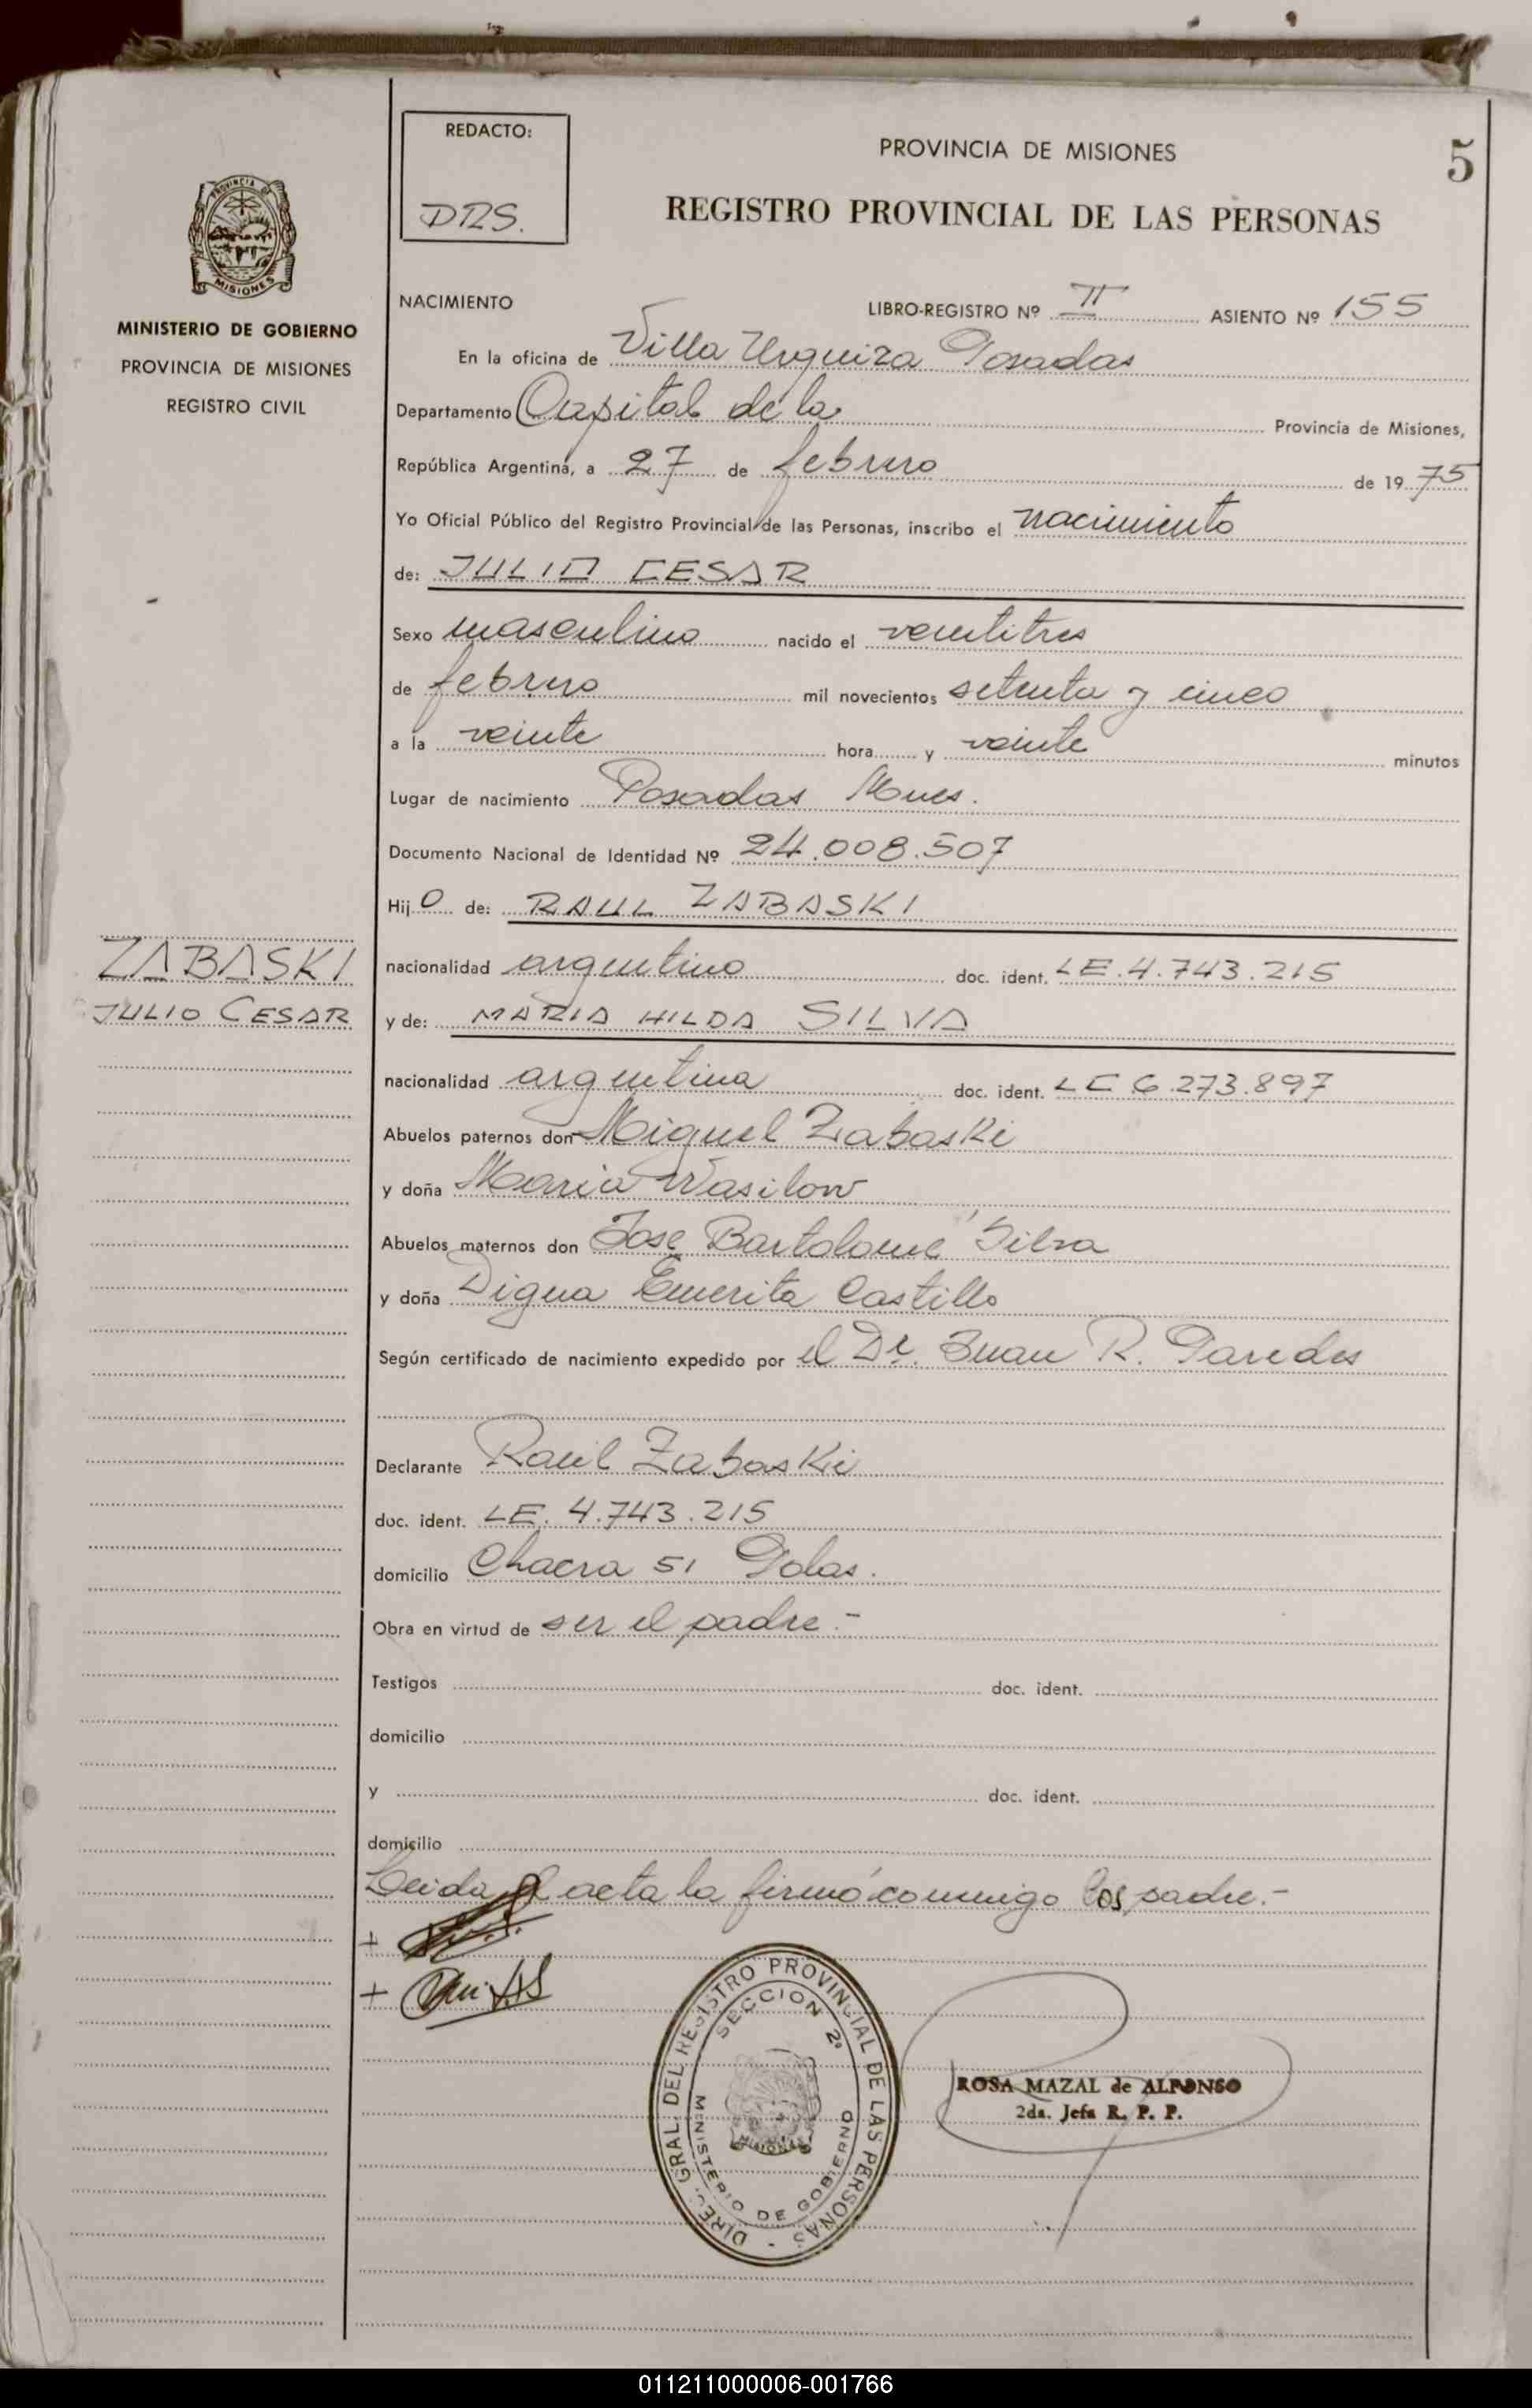 REDACTO:
DRS.
PROVINCIA DE MISIONES
5
REGISTRO PROVINCIAL DE LAS PERSONAS
MISIONES
MINISTERIO DE GOBIERNO
PROVINCIA DE MISIONES
REGISTRO CIVIL
NACIMIENTO LIBRO-REGISTRO Nº II ASIENTO Nº 155
En la oficina de Villa Urquiza Posadas
Departamento Capital de la Provincia de Misiones,
República Argentina, a 27 de febrero de 1975
Yo Oficial Público del Registro Provincial de las Personas, inscribo el nacimiento
de: JULIO CESAR
Sexo masculino nacido el veintitres
de febrero mil novecientos setenta y cinco
a la veinte hora y veinte minutos
Lugar de nacimiento Posadas Mnes.
Documento Nacional de Identidad Nº 24.008.507
Hijo de: RAUL ZABASKI
ZABASKI
JULIO CESAR
nacionalidad argentino doc. ident. LE.4.743.215
y de: MARIA HILDA SILVA
nacionalidad argentina doc. ident. LC 6.273.897
Abuelos paternos don Miguel Zabaski
y doña Maria Wasilow
Abuelos maternos don Jose Bartolomé Silva
y doña Digna Emerita Castillo
Según certificado de nacimiento expedido por el Dr. Juan R. Paredes
Declarante Raúl Zabaski
doc. ident. LE. 4.743.215
domicilio Chacra 51 Pdas.
Obra en virtud de ser el padre.-
Testigos doc. ident.
domicilio
y doc. ident.
domicilio
Leida el acta la firmó conmigo los padre.-
+
+
DIREC. GRAL. DEL REGISTRO PROVINCIAL DE LAS PERSONAS -
SECCION 2ª
MINISTERIO DE GOBIERNO
MISIONES
ROSA MAZAL de ALFONSO
2da. Jefa R. P. P.
011211000006-001766